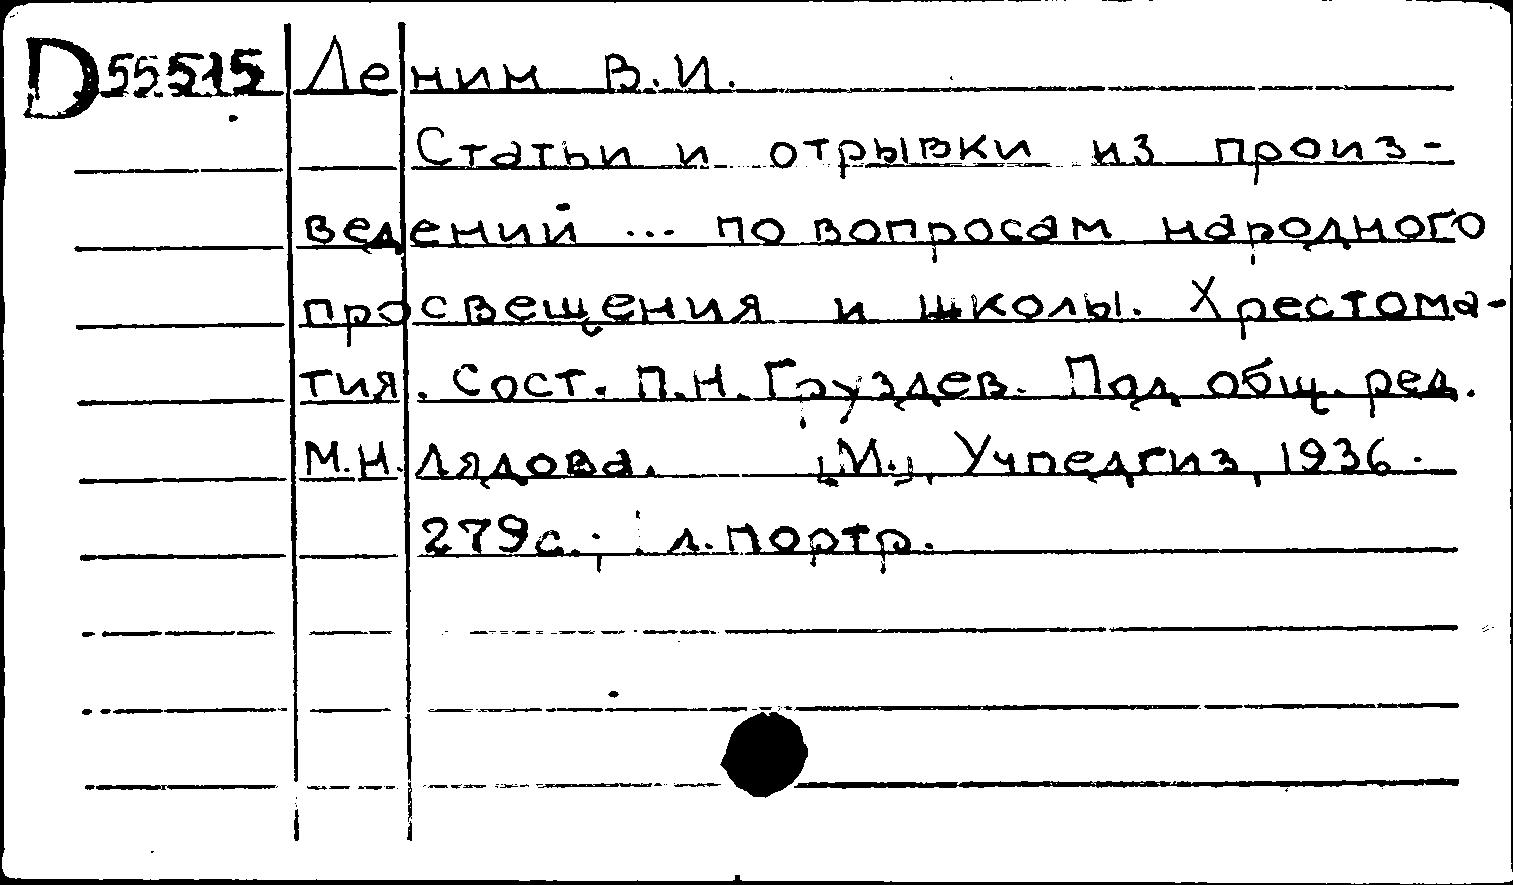 D55515 Ленин В.И.
Статьи и отрывки из произ-
ведений ... по вопросам народного
просвещения и школы. Хрестома-
тия. Сост. П.Н. Груздев. Под общ. ред.
М.Н. Лядова. [М.], Учпедгиз, 1936.
279 с.; л. портр.